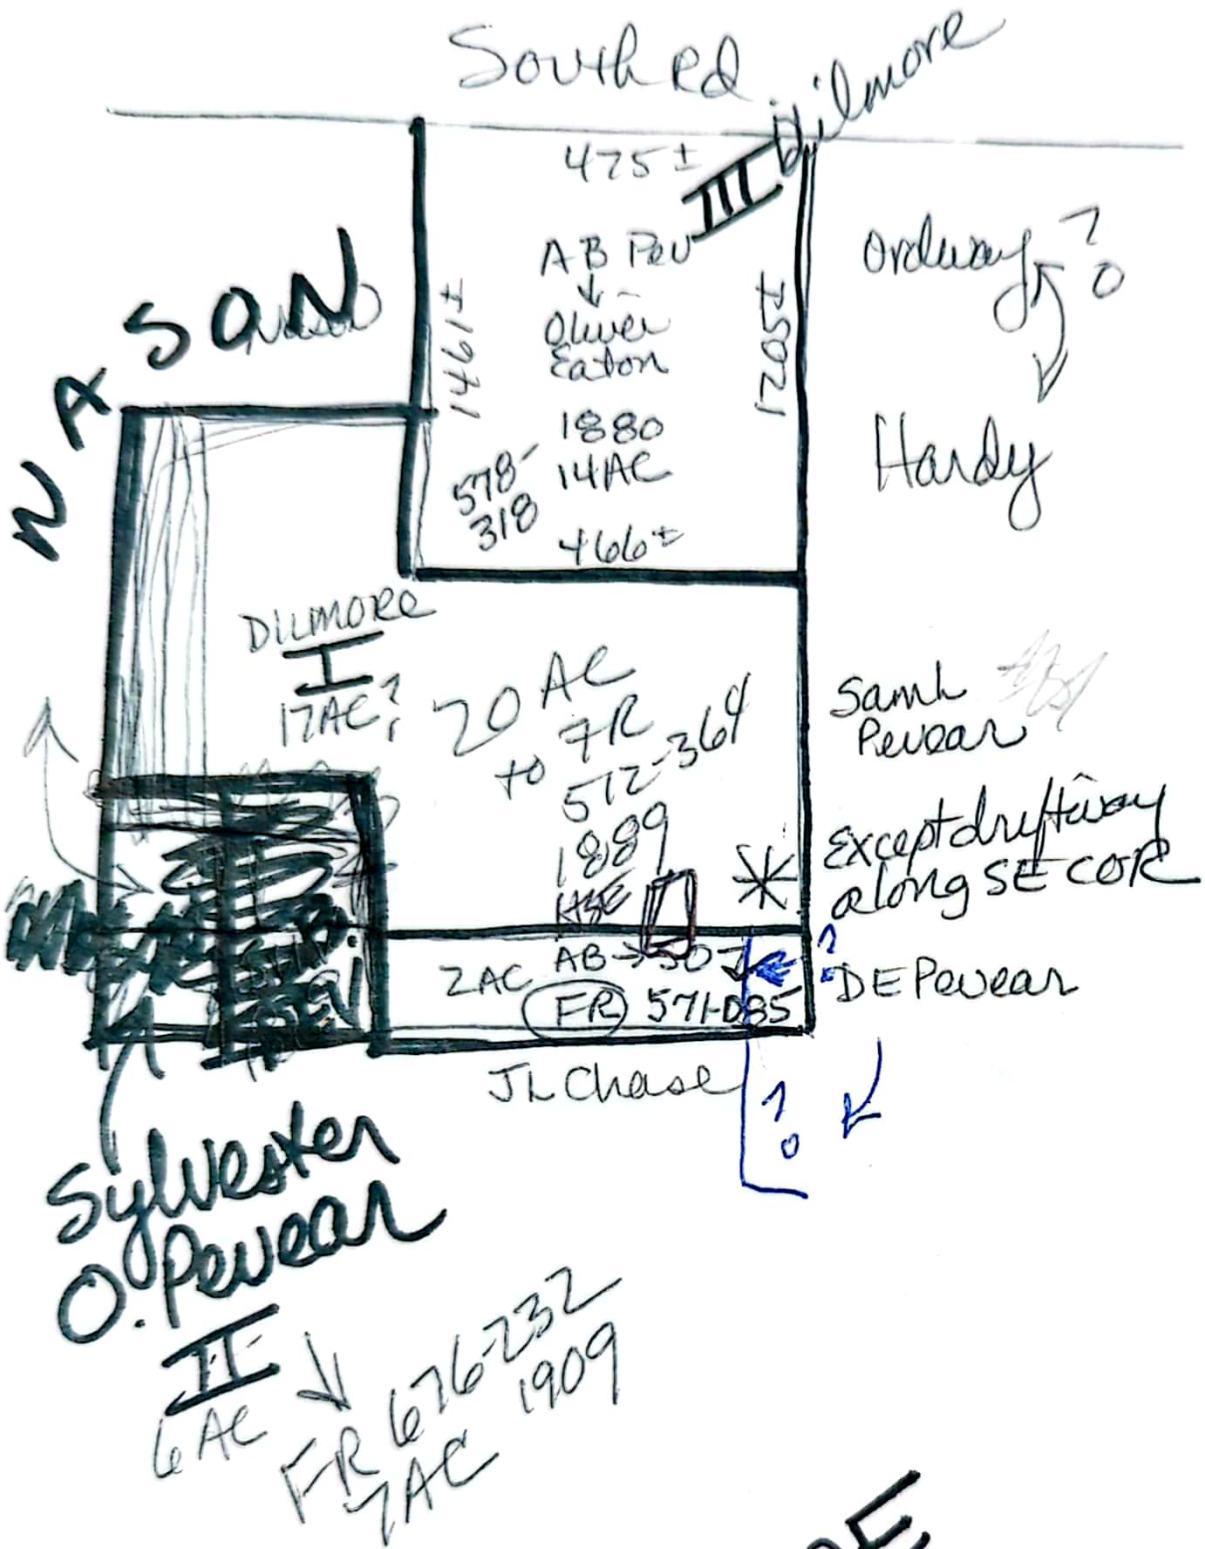 South Rd
Dilmore
III
475±
AB Pev
↓
Oliver
Eaton
1880
14AC
578-
318
1461±
1205±
466±
Ordway ?
Hardy
NASON
DILMORE
I
17AC?
20 AC
to 7R
572-364
1889
HSE
Saml
Pevear
Except driftway
along SE COR
?
DE Pevear
2AC AB→SOJ
FR 571-085
JL Chase
?
Sylvester
O. Pevear
II
6 AC
FR 676-232
7AC 1909